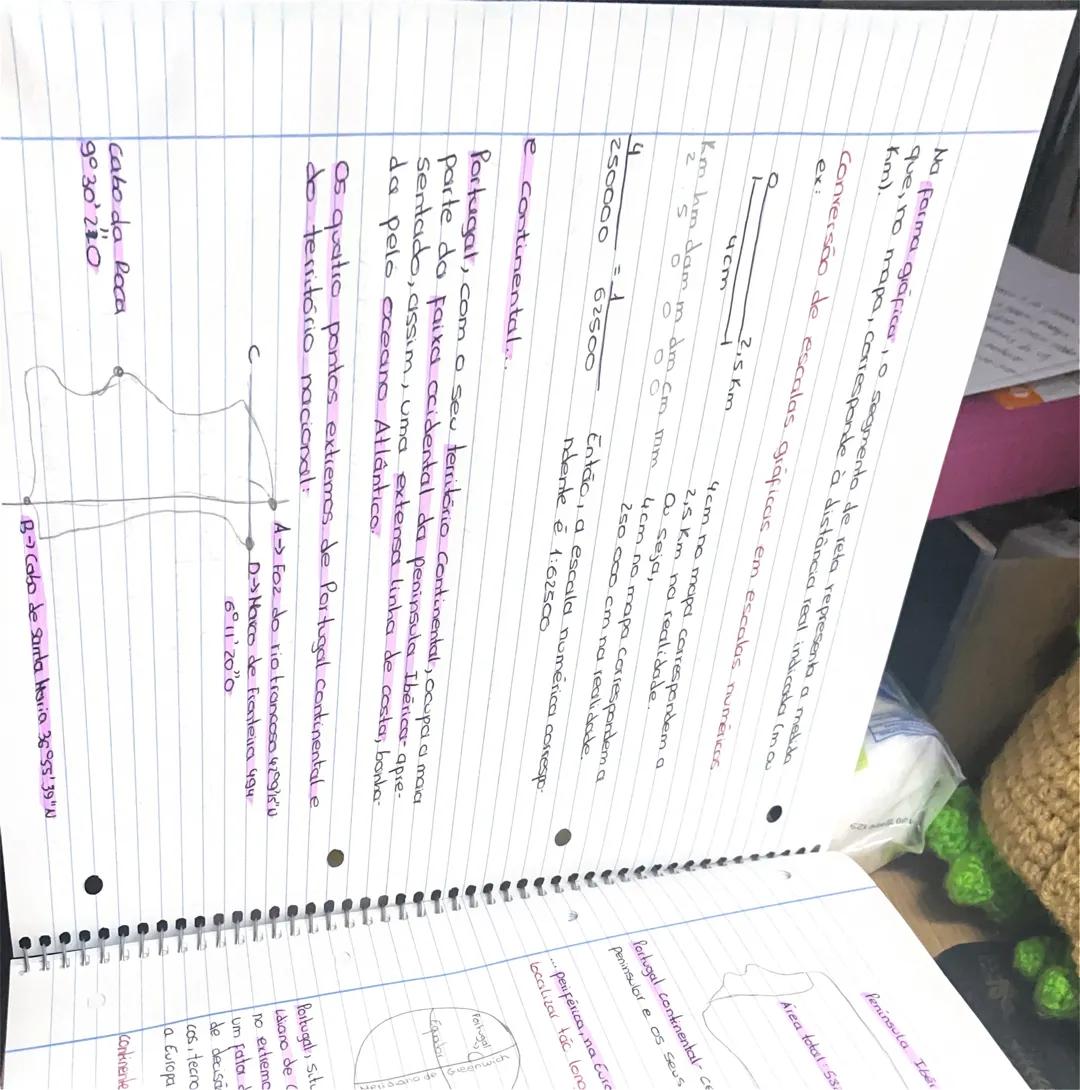 Na forma gráfica, o segmento de reta representa a medida
que, no mapa, corresponde à distância real indicada (m ou
Km).
Conversão de escalas gráficas em escalas numéricas
ex:
0 2,5 Km
4cm
4cm no mapa correspondem a
2,5 Km na realidade.
Ou seja,
4cm no mapa correspondem a
250 000 cm na realidade.
Km hm dam m dm cm mm
2 5 0 0 0 0
4
250000 = 1
62500
Então, a escala numérica correspo-
ndente é 1:62500
e continental...
Portugal, com o seu território continental, ocupa a maior
parte da faixa ocidental da península Ibérica- apre-
sentado, assim, uma extensa linha de costa, banha-
da pelo oceano Atlântico.
Os quatro pontos extremos de Portugal continental e
do território nacional:
C
A→ Foz do rio trancoso
D→ Marco de Fronteira 494
6º 11' 20" O
Cabo da Roca
9º 30' 2" O
B→ Cabo de Santa Maria 36º55'39"N
Península
Área total:
Portugal continental
peninsular e os seus
... periférica, na
localizar tão long
Portugal
Equador
Meridiano de Greenwich
Portugal, situ
no extremo
um fator
de decisõ
cos, tecno
a Europa
continente